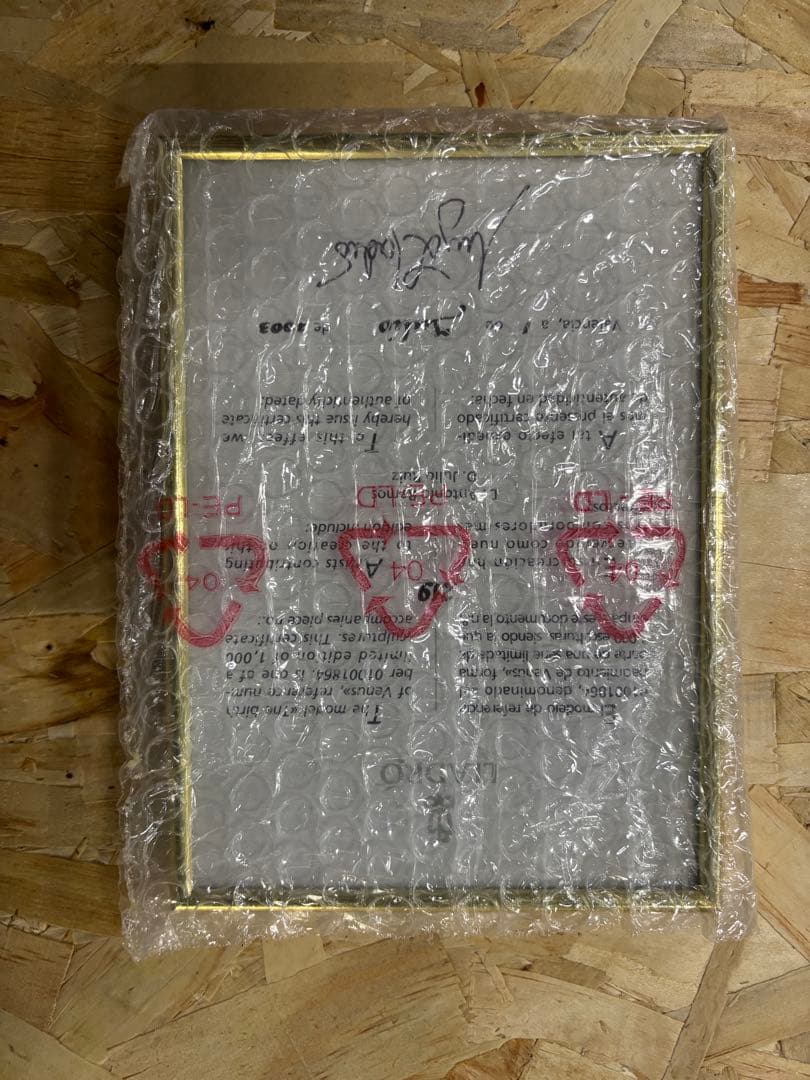 LLADRÓ
El modelo de referencia
01001864, denominado «El
nacimiento de Venus», forma
parte de una serie limitada de
1.000 esculturas siendo la que
ampara este documento la n.º:
The model «The birth
of Venus», reference num-
ber 01001864, is one of a
limited edition of 1,000
sculptures. This certificate
accompanies piece no.:
creación han
como nues-
colaboradores más
Artists contributing
to the creation of this
edition include:
D. Antonio Ramos
D. Julio Ruiz
A tal efecto expedi-
mos el presente certificado
de autenticidad en fecha:
To this effect, we
hereby issue this certificate
of authenticity dated:
Valencia, a 1 de Julio de 2003
04
PE-LD
04
PE-LD
04
PE-LD